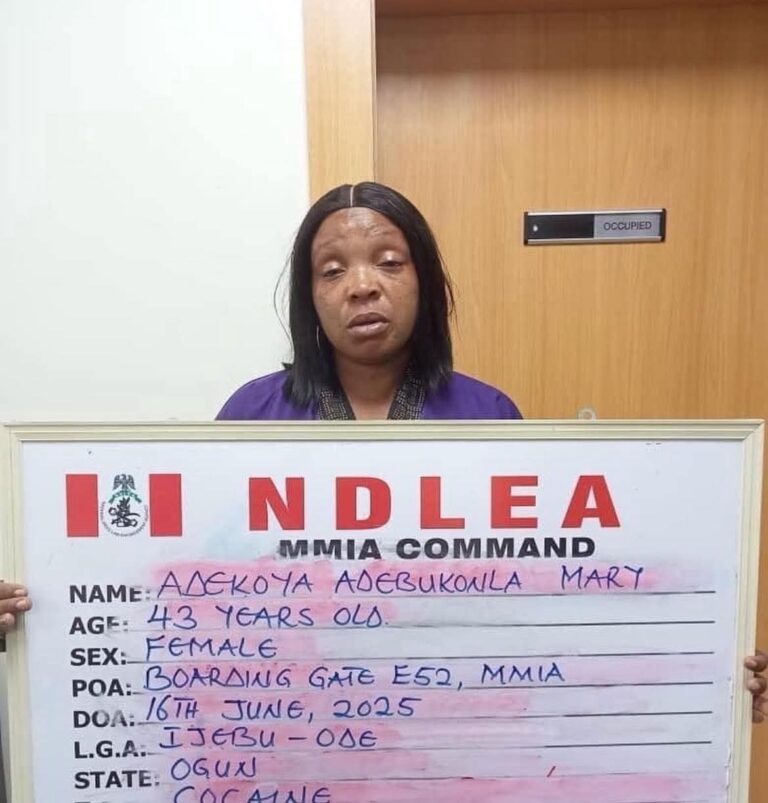 OCCUPIED
NDLEA
MMIA COMMAND
NAME: ADEKOYA ADEBUKONLA MARY
AGE: 43 YEARS OLD.
SEX: FEMALE
POA: BOARDING GATE E52, MMIA
DOA: 16TH JUNE, 2025
L.G.A: IJEBU-ODE
STATE: OGUN
COCAINE